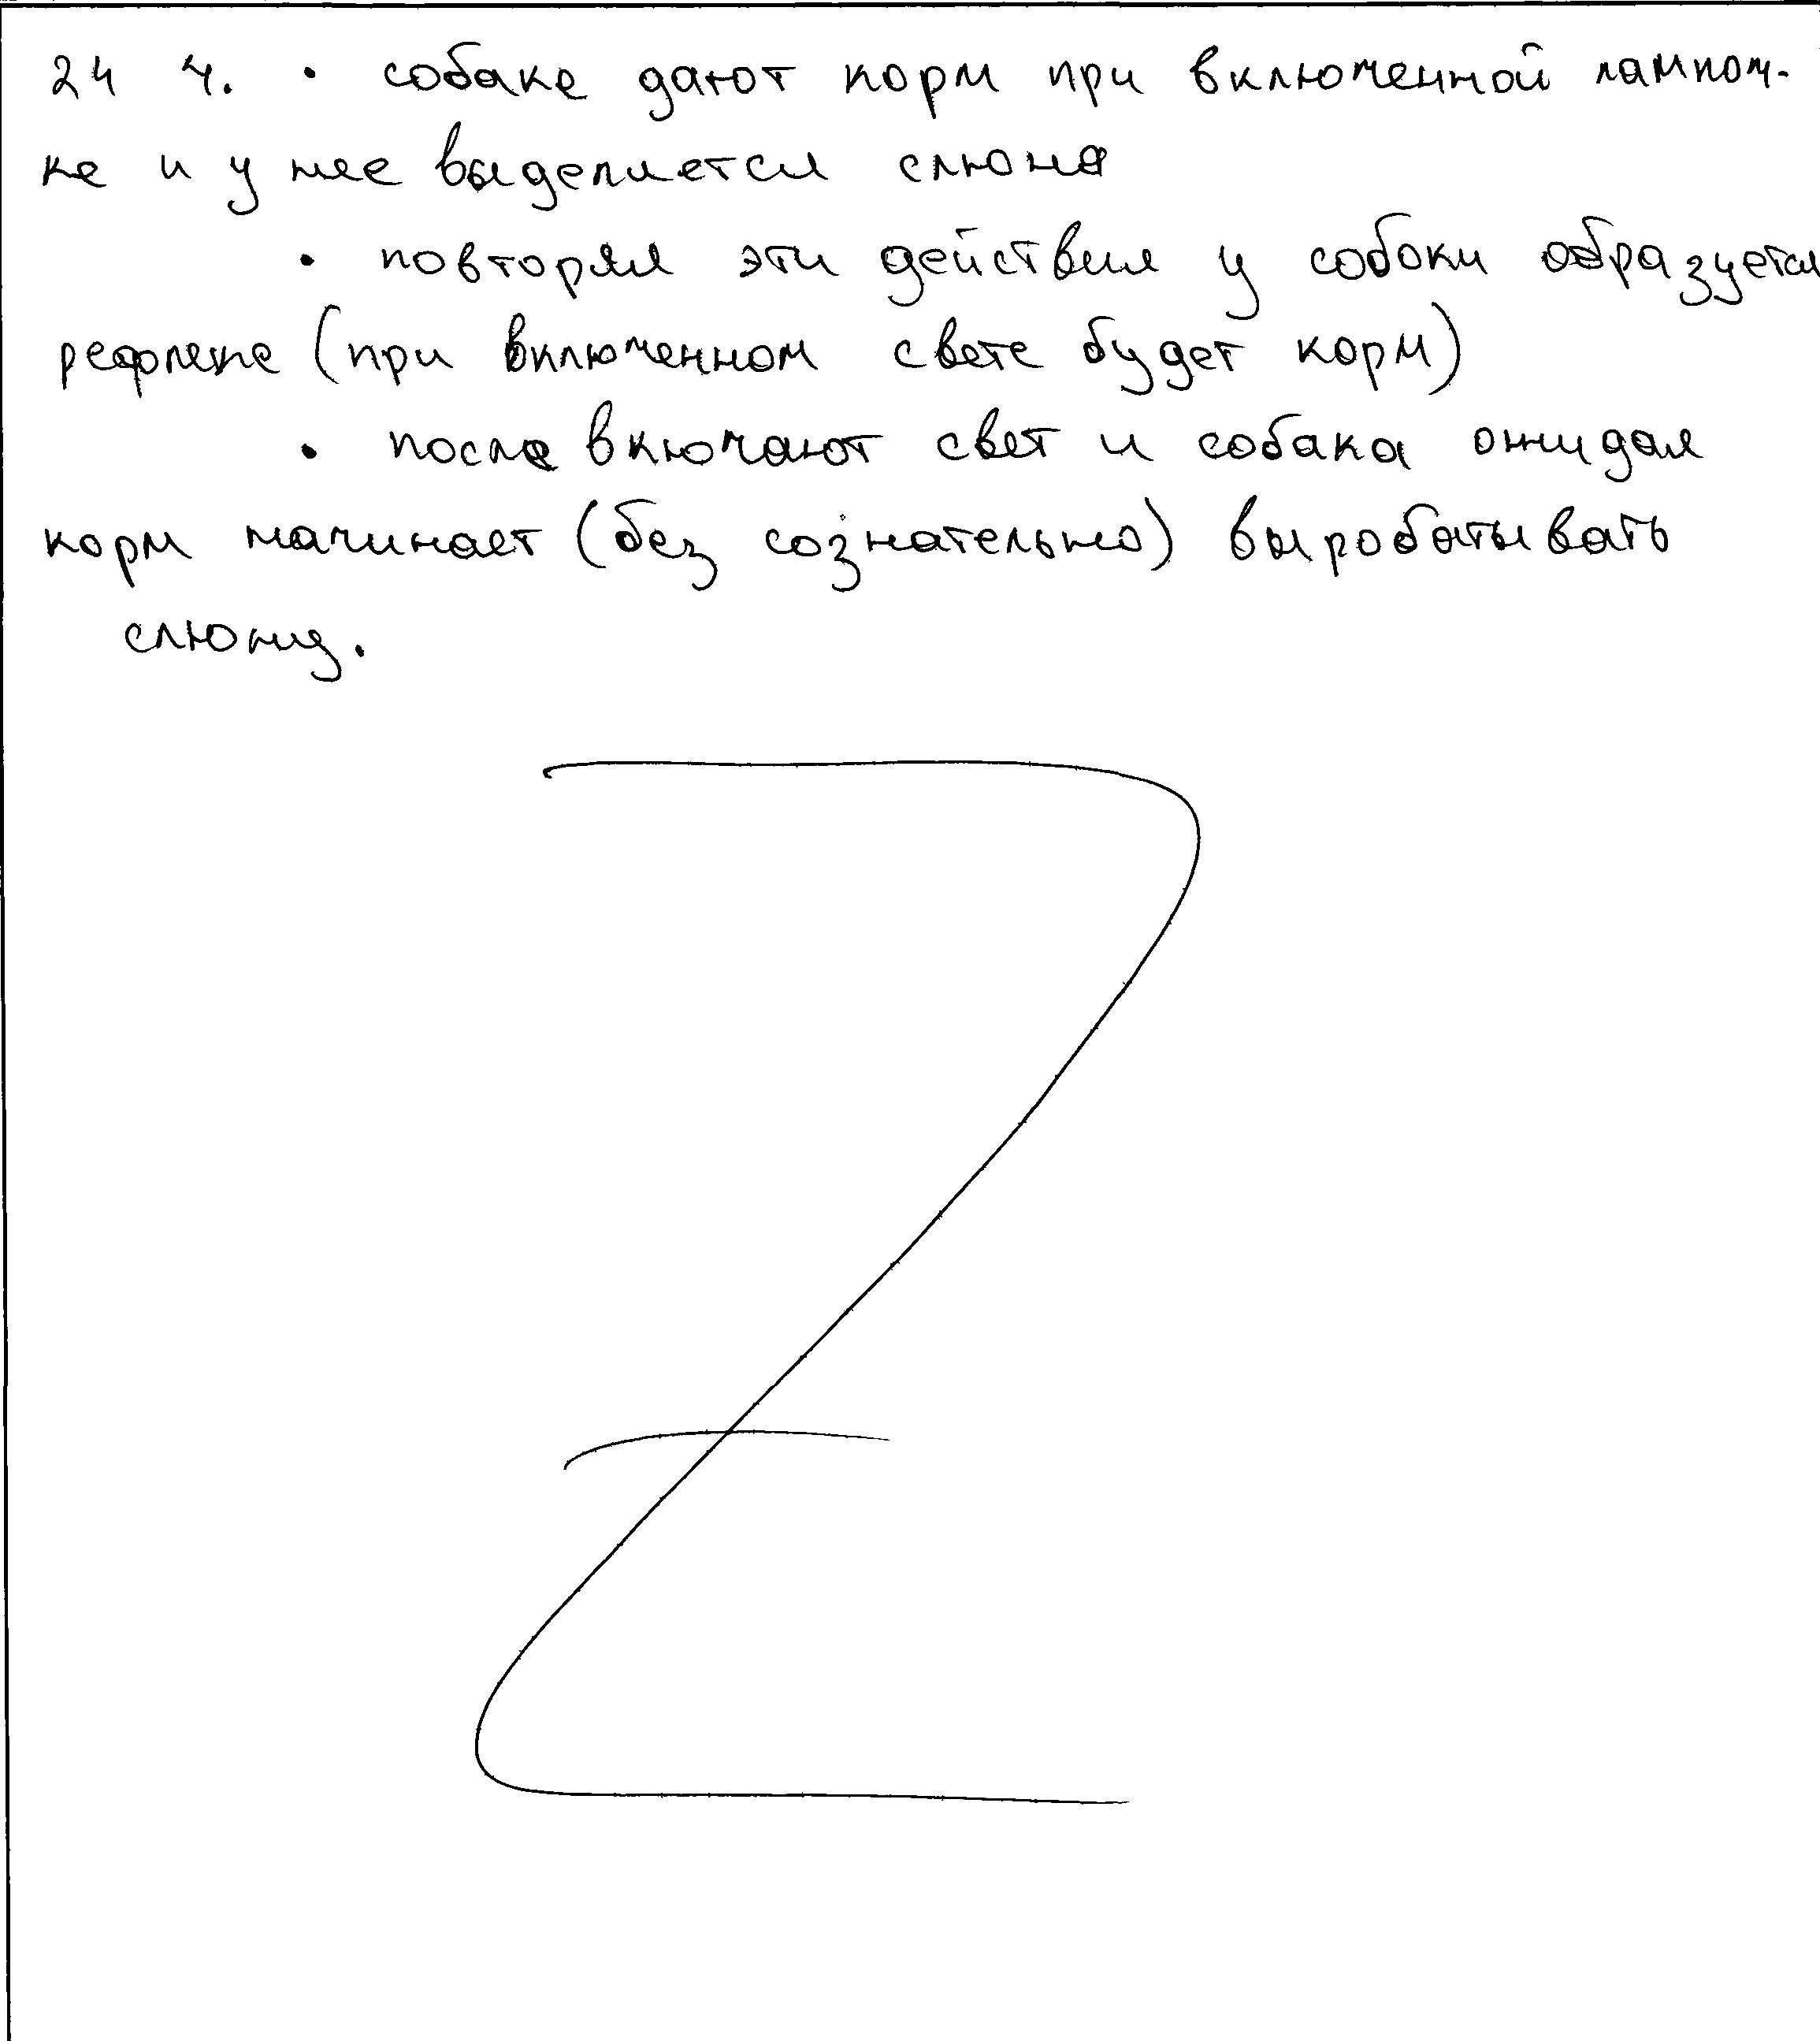 24 ч. • собаке дают корм при включенной лампоч-
ке и у нее выделяется слюна
• повторяя эти действия у собоки образуется
рефлекс (при включенном свете будет корм)
• после вкючают свет и собака ожидая
корм начинает (без сознательно) выробатывать
слюну.
Z